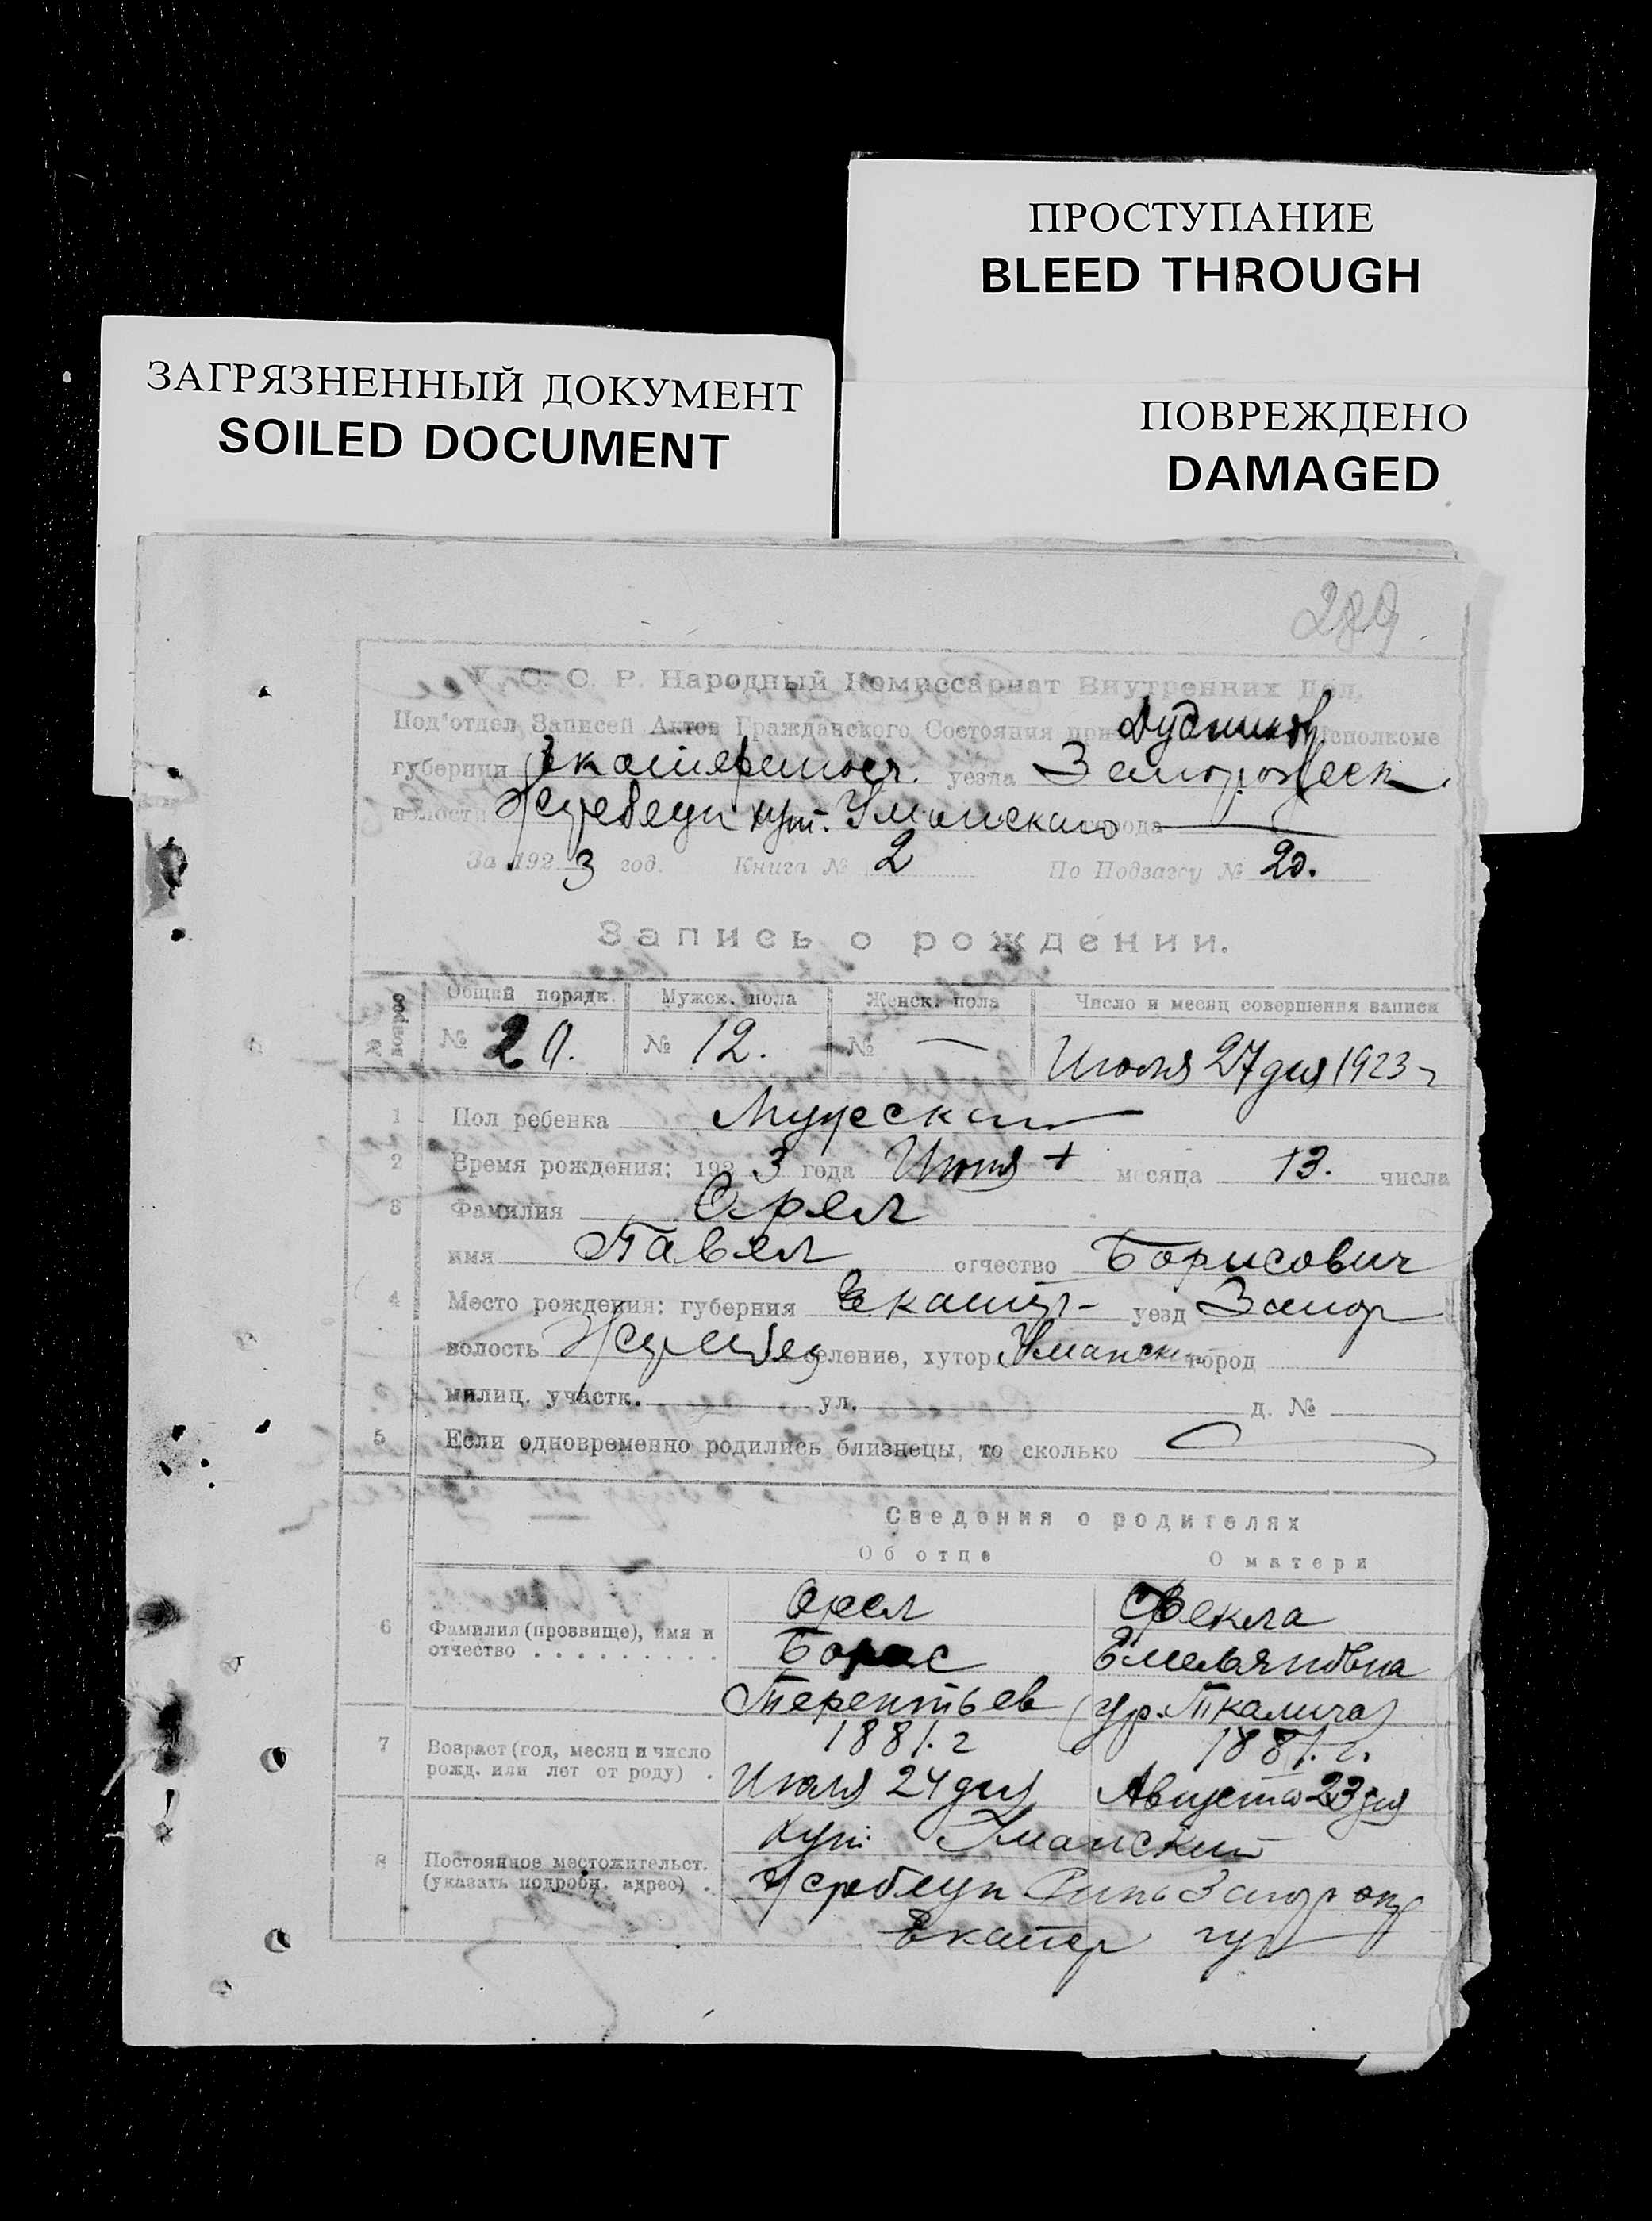 ПРОСТУПАНИЕ
BLEED THROUGH
ЗАГРЯЗНЕННЫЙ ДОКУМЕНТ
SOILED DOCUMENT
ПОВРЕЖДЕНО
DAMAGED
289
С. С. Р. Народный Комиссариат Внутренних Дел.
Под'отдел Записей Актов Гражданского Состояния при Исполкоме
губернии уезда
волости хут. Уманскаго города
За 1923 год. Книга № 2 По Подзагсу № 20.
Запись о рождении.
№ вопроса Общий порядк. Мужск. пола Женск. пола Число и месяц совершения записи
№ 20. № 12. № — Июля 27 дня 1923 г
1 Пол ребенка Мужеска
2 Время рождения: 1923 года месяца 13. числа
3 Фамилия Орел
имя Павел отчество Борисович
4 Место рождения: губерния уезд Запор
волость селение, хутор Уманск город
милиц. участк. ул. д. №
5 Если одновременно родились близнецы, то сколько
Сведения о родителях
Об отце О матери
6 Фамилия (прозвище), имя и отчество Орел Фекла
Борис Емельяновна
Терентьев (ур. Ткалича)
7 Возраст (год, месяц и число рожд. или лет от роду) 1881. г 1881. г.
Июля 24 дня Августа 23 дня
8 Постоянное местожительст. (указать подробн. адрес) хут. Уманский
Запор окр
Екатер губ